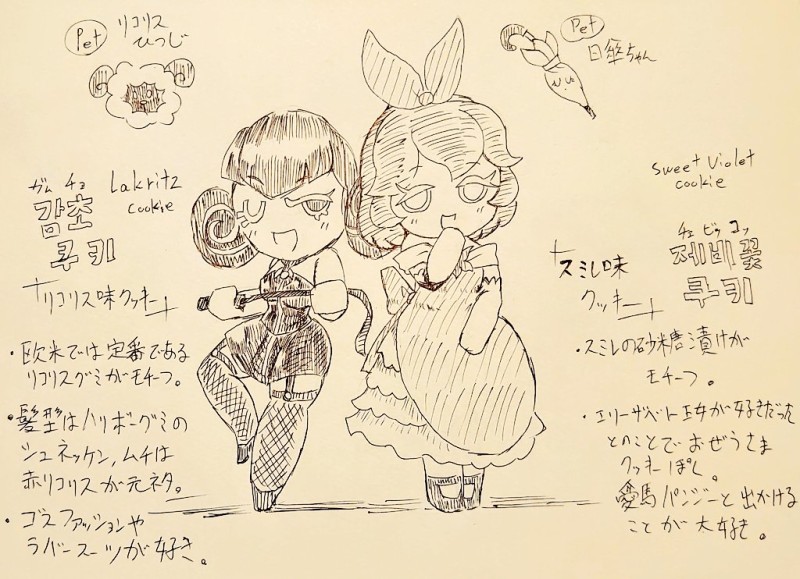 Pet
リコリス
ひつじ
Pet
日傘ちゃん
ガム チョ
감초
쿠키
Lakritz
cookie
リコリス味クッキー
・欧米では定番である
リコリスグミがモチーフ。
・髪型はハリボーグミの
シュネッケン、ムチは
赤リコリスが元ネタ。
・ゴスファッションや
ラバースーツが好き。
sweet violet
cookie
チェ ビ コッ
제비꽃
쿠키
スミレ味
クッキー
・スミレの砂糖漬けが
モチーフ。
・エリーザベト王女が好きだった
とのことでおぜうさま
クッキーぽく。
愛馬パンジーと出かける
ことが大好き。